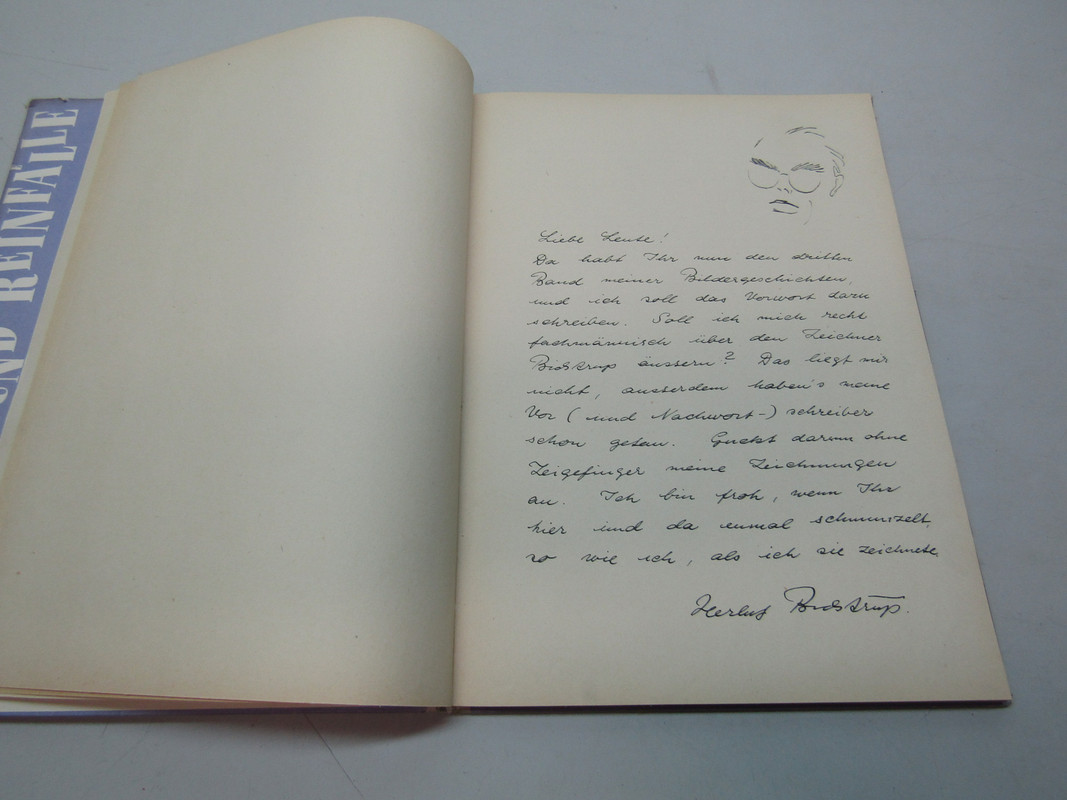 UND REINFÄLLE
Liebe Leute!
Da habt Ihr nun den dritten
Band meiner Bildergeschichten,
und ich soll das Vorwort dazu
schreiben. Soll ich mich recht
fachmännisch über den Zeichner
Bidstrup äussern? Das liegt mir
nicht, ausserdem haben's meine
Vor (und Nachwort-) schreiber
schon getan. Guckt darum ohne
Zeigefinger meine Zeichnungen
an. Ich bin froh, wenn Ihr
hier und da einmal schmunzelt,
so wie ich, als ich sie zeichnete.
Herluf Bidstrup.